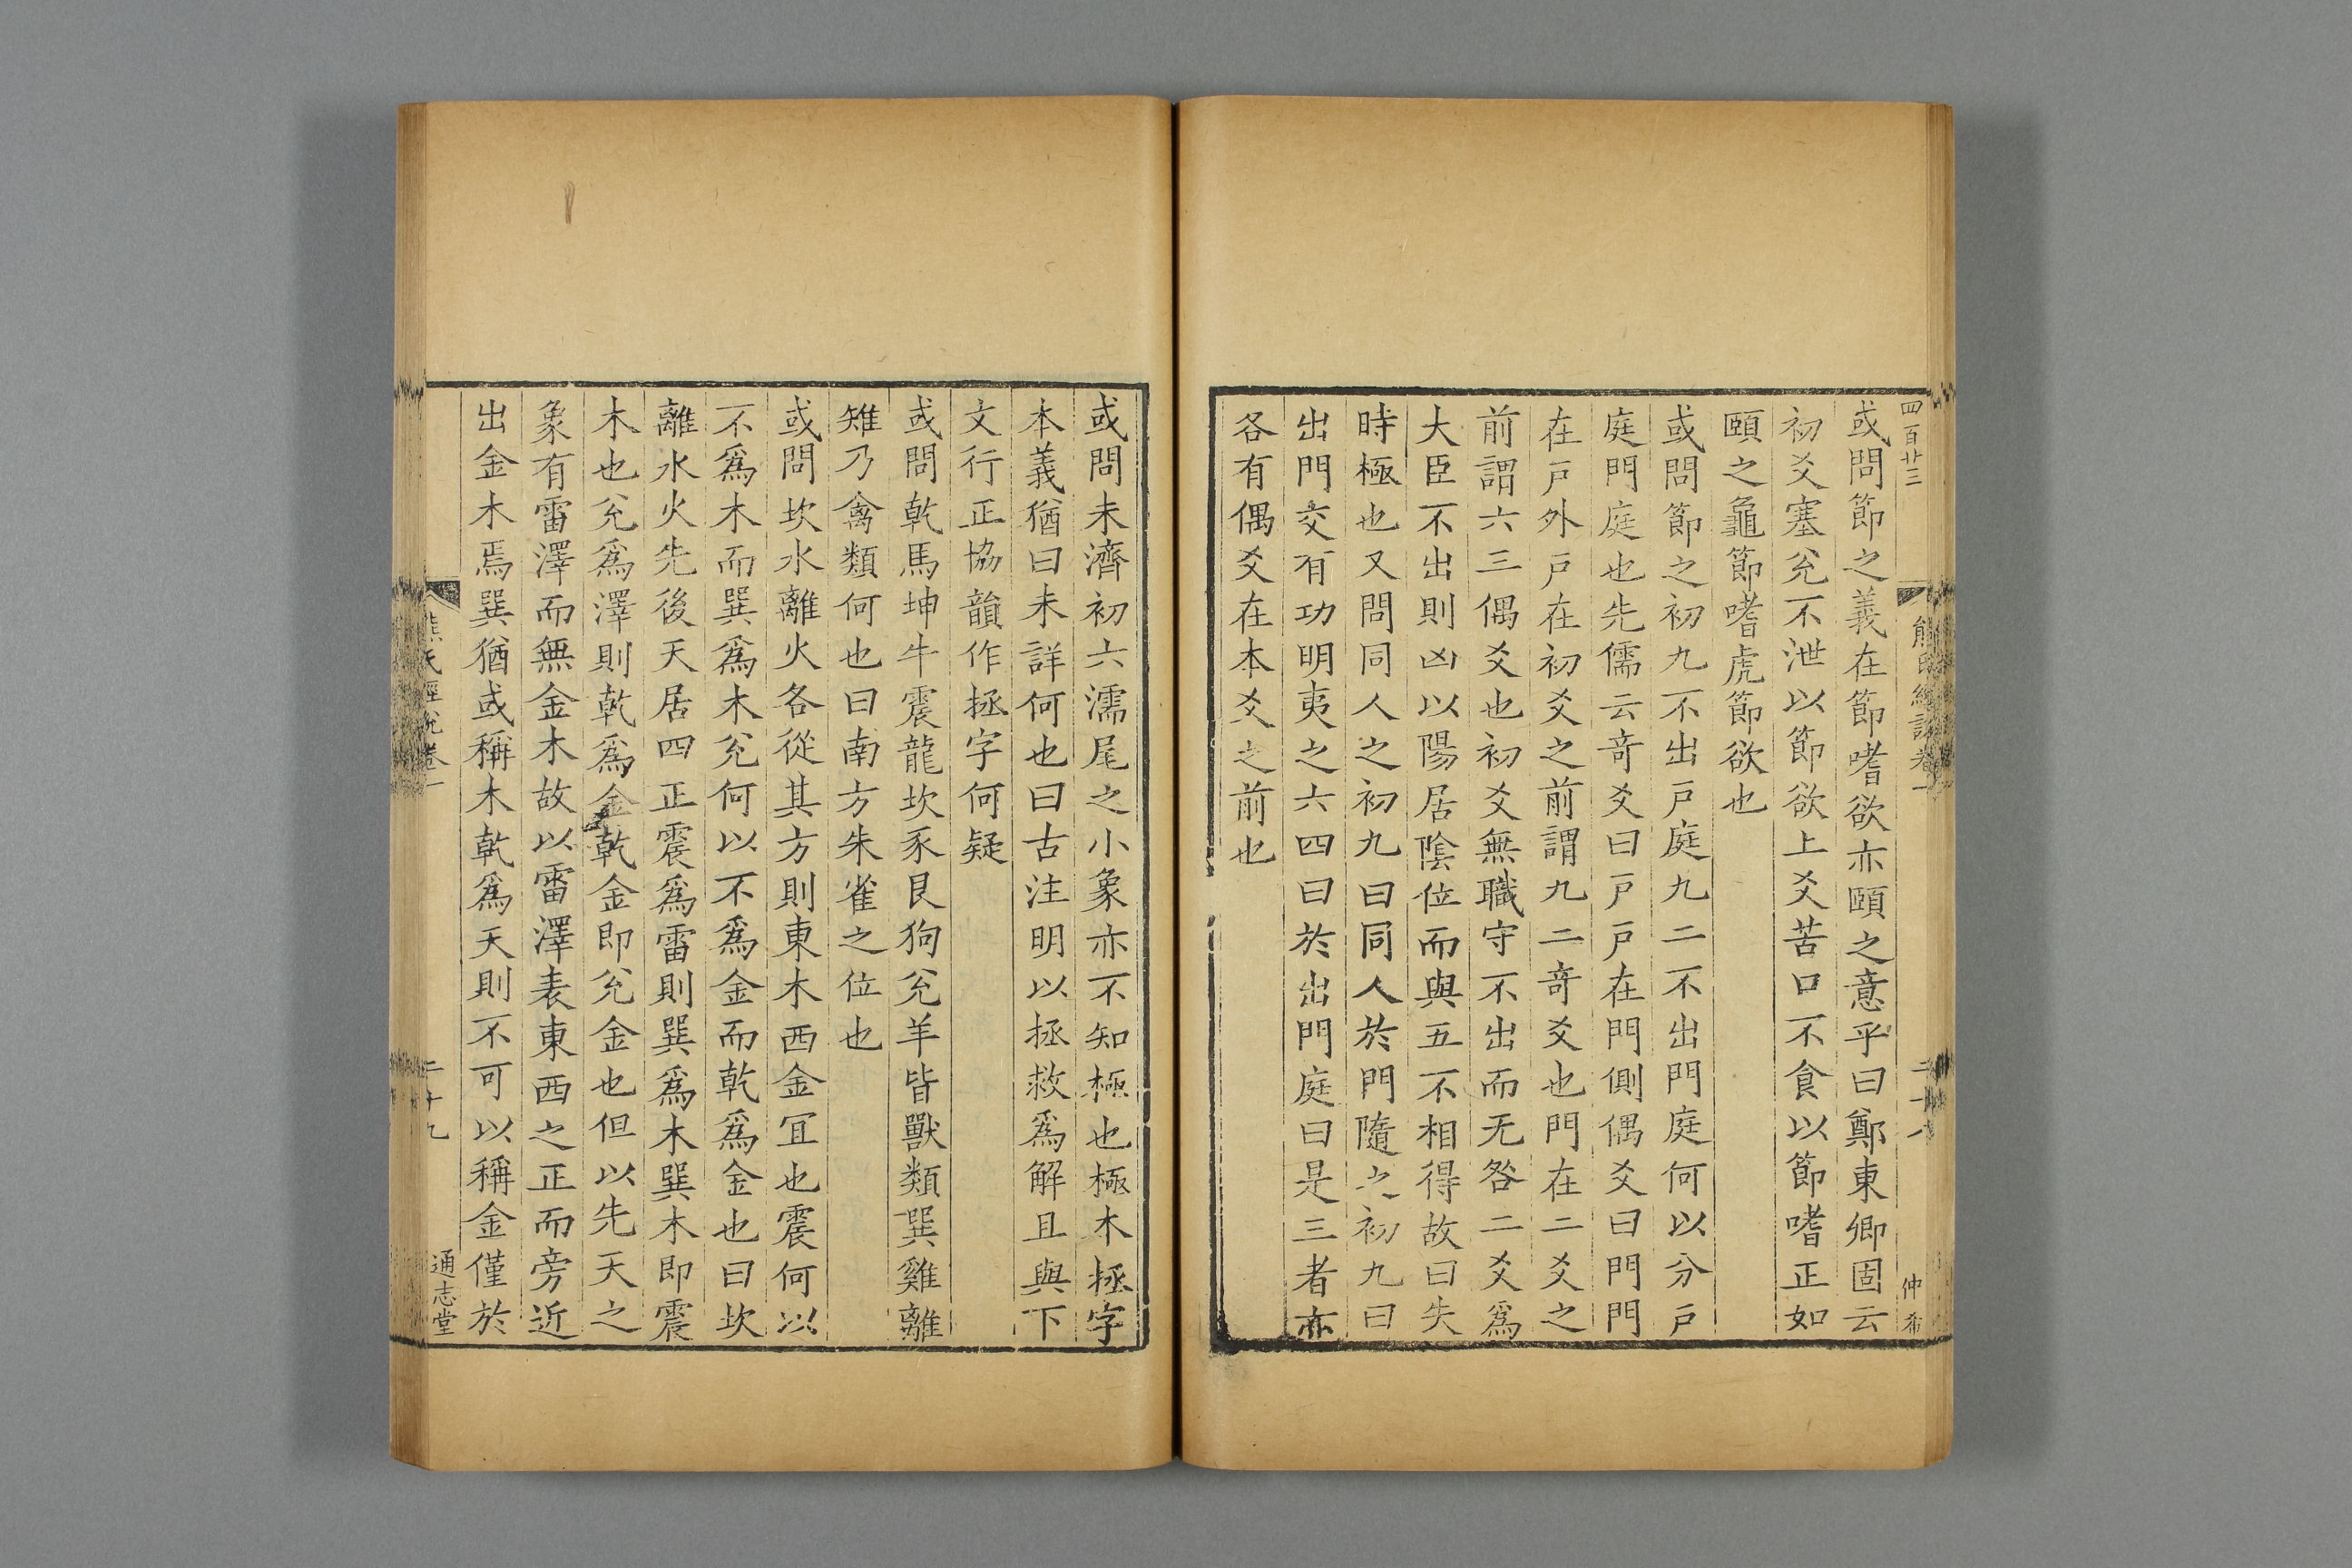 四百廿三
熊氏經說卷一
二十八
仲希
或問節之義在節嗜欲亦頤之意乎曰鄭東卿固云
初爻塞兊不泄以節欲上爻苦口不食以節嗜正如
頤之龜節嗜虎節欲也
或問節之初九不出戶庭九二不出門庭何以分戶
庭門庭也先儒云奇爻曰戶戶在門側偶爻曰門門
在戶外戶在初爻之前謂九二奇爻也門在二爻之
前謂六三偶爻也初爻無職守不出而无咎二爻爲
大臣不出則凶以陽居陰位而與五不相得故曰失
時極也又問同人之初九曰同人於門隨之初九曰
出門交有功明夷之六四曰於出門庭曰是三者亦
各有偶爻在本爻之前也
或問未濟初六濡尾之小象亦不知極也極本拯字
本義猶曰未詳何也曰古注明以拯救爲解且與下
文行正協韻作拯字何疑
或問乾馬坤牛震龍坎豕艮狗兊羊皆獸類巽雞離
雉乃禽類何也曰南方朱雀之位也
或問坎水離火各從其方則東木西金冝也震何以
不爲木而巽爲木兊何以不爲金而乾爲金也曰坎
離水火先後天居四正震爲雷則巽爲木巽木即震
木也兊爲澤則乾爲金乾金即兊金也但以先天之
象有雷澤而無金木故以雷澤表東西之正而旁近
出金木焉巽猶或稱木乾爲天則不可以稱金僅於
熊氏經說卷一
二十九
通志堂